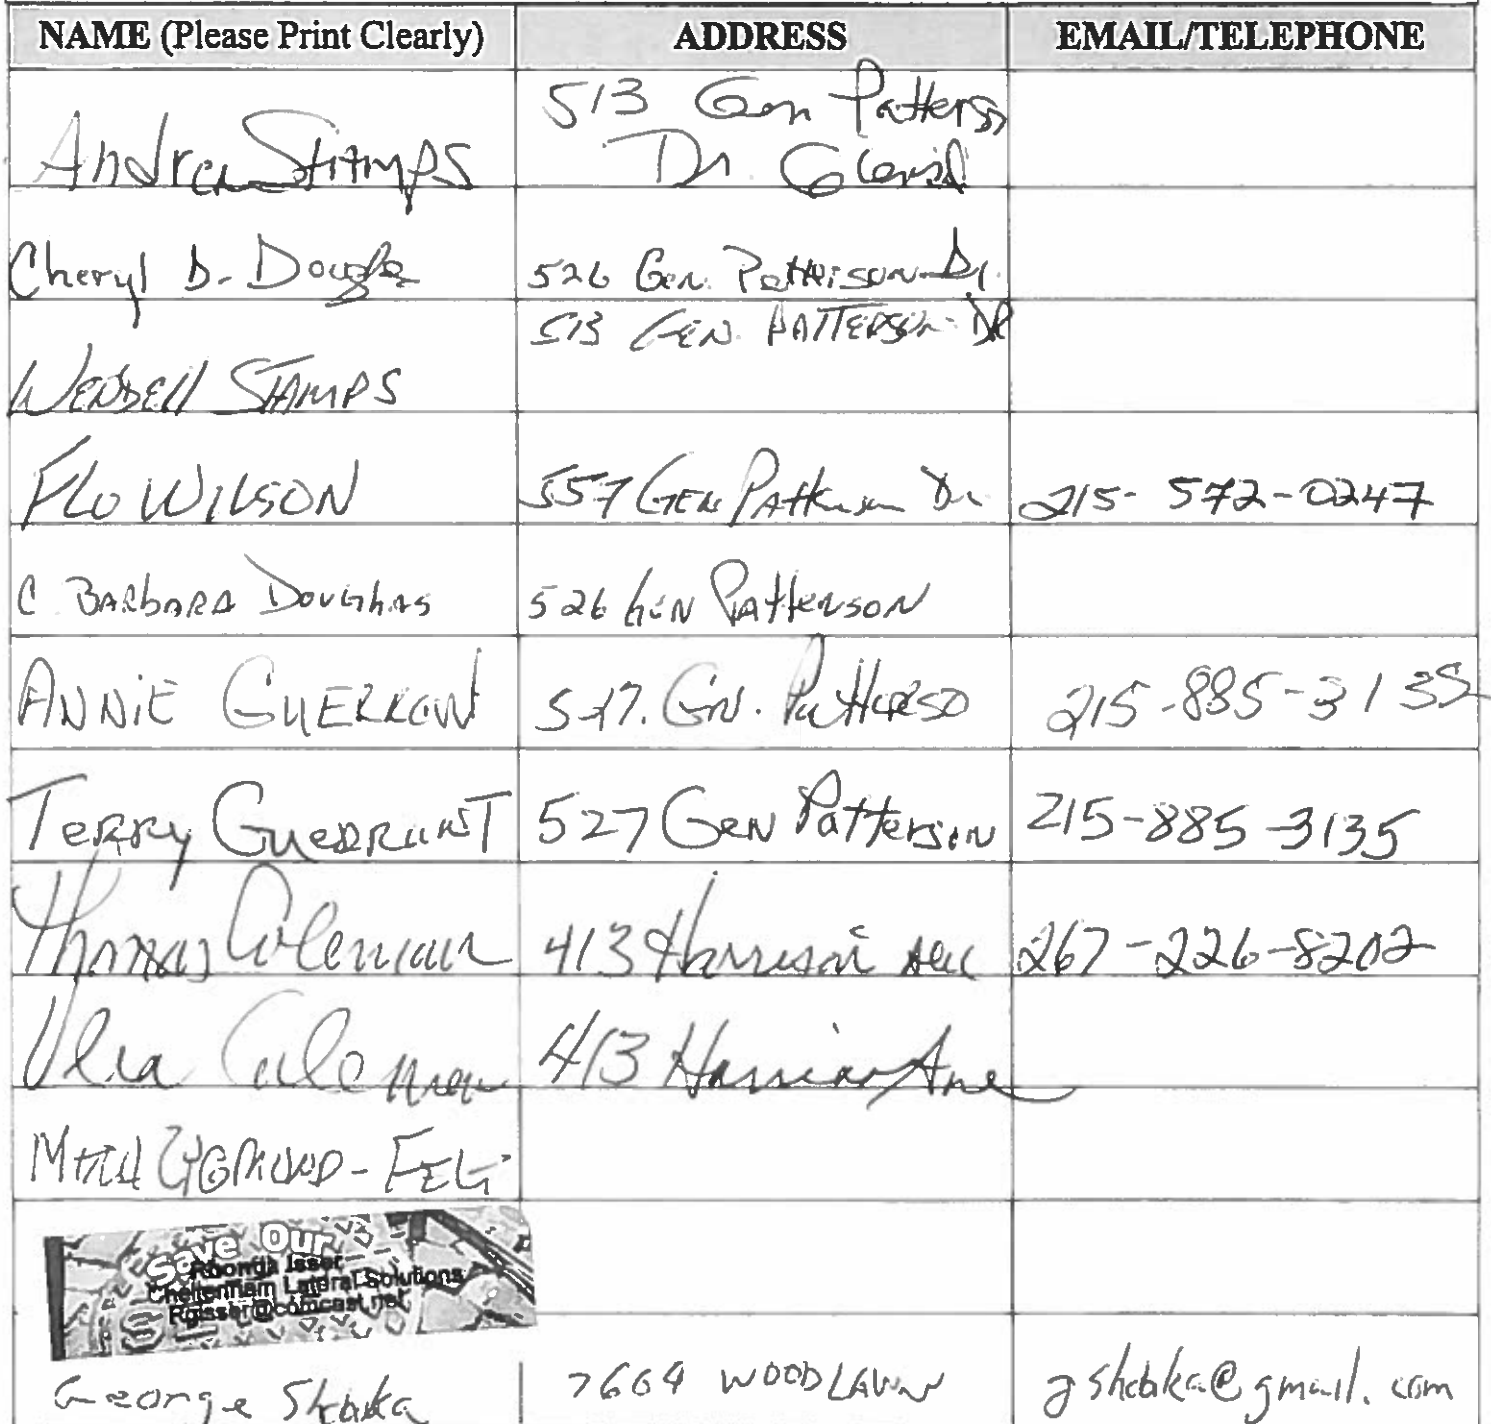 NAME (Please Print Clearly) ADDRESS EMAIL/TELEPHONE
513 Gen Patterson
Andrea Stamps Dr.
Cheryl D. Douglas 526 Gen. Patterson Dr.
513 GEN. PATTERSON DR
WENDELL STAMPS
FLO WILSON 557 GEN Patterson Dr 215-572-0247
C BARBARA DOUGHAS 526 GEN PATTERSON
ANNIE Gn. Patterso 215-885-3135
TERRY GUERRANT 527 GEN Patterson 215-885-3135
Thomas Coleman 413 Harrison Ave 267-226-8202
Coleman 413 Harrison Ave
Save Our
Rhonda Isser
Cheltenham Lateral Solutions
Rgisser@comcast.net
George Shabka 7604 WOODLAWN gshabka@gmail.com